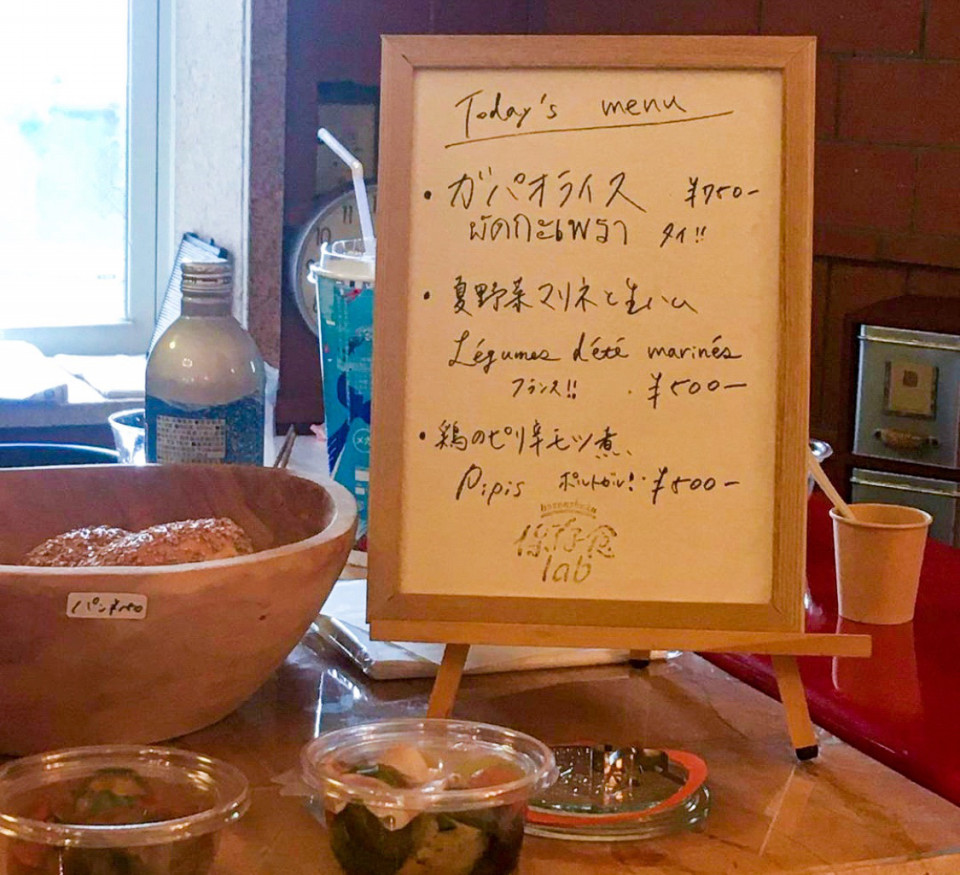 Today's menu
・ガパオライス ¥750-
ผัดกะเพรา タイ!!
・夏野菜マリネと生ハム
Légumes d'été marinés
フランス!! ¥500-
・鶏のピリ辛モツ煮、
Pipis ポルトガル! ¥500-
保存食
lab
パン
10
11